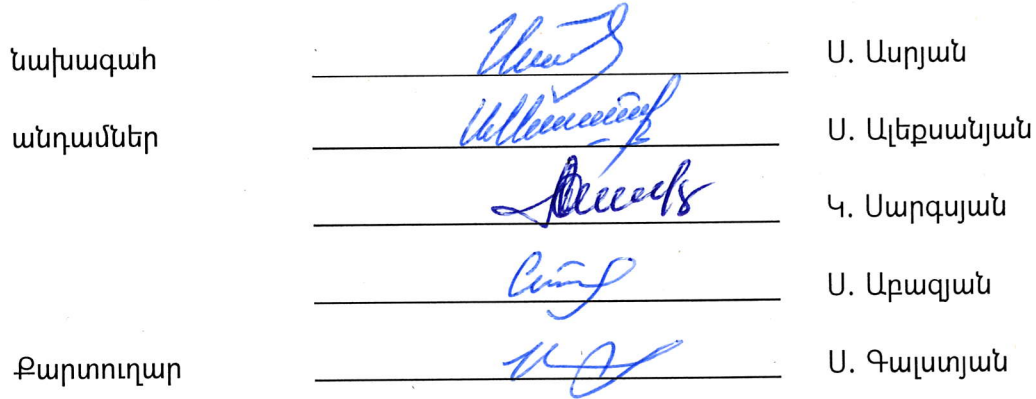 նախագահ Ս. Ասրյան
անդամներ Ս. Ալեքսանյան
Կ. Սարգսյան
Ս. Աբազյան
Քարտուղար Ս. Գալստյան